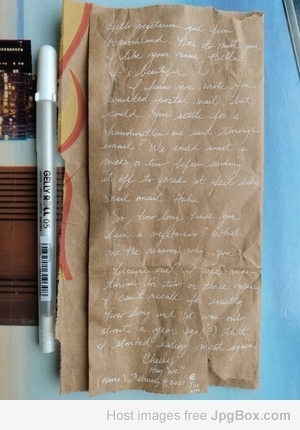 Hello vegetarian girl from
Nice to meet you
I like your name, Bella
It's beautiful.
I know you wrote you
wanted postal mail, but
could you settle for a
handwritten one sent through
email? We could wait a
week or two before sending
it off to make it feel like
snail mail. Haha.
So how long have you
been a vegetarian? What
are the reasons why you
became one? I was vege-
tarian for two or three years,
I can't recall for exactly
how long and it was only
about a year ago that
I started eating meat again.
Cheers,
February 4, 2021
GELLY ROLL 05
Host images free JpgBox.com